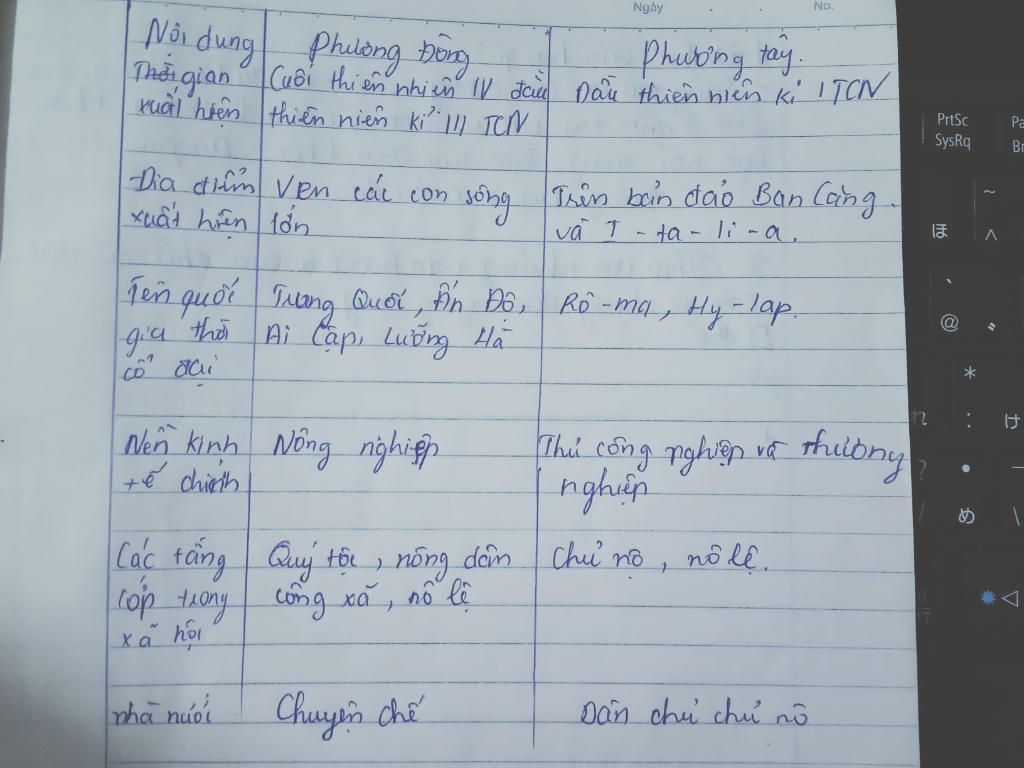 Ngày . . No.
Nội dung Phương Đông Phương tây.
Thời gian Cuối thiên nhiên IV đầu Đầu thiên niên kỉ I TCN
xuất hiện thiên niên kỉ III TCN
Địa điểm Ven các con sông Trên bán đảo Ban Căng.
xuất hiện lớn và I - ta - li - a.
Tên quốc Trung Quốc, Ấn Độ, Rô - ma, Hy - lap.
gia thời Ai Cập, Lưỡng Hà
cổ đại
Nền kinh Nông nghiệp Thủ công nghiệp và thương
tế chính nghiệp
Các tầng Quý tộc, nông dân Chủ nô, nô lệ.
lớp trong công xã, nô lệ
xã hội
nhà nước Chuyên chế Dân chủ chủ nô
PrtSc
SysRq
Pa
Br
~
ほ ^
@
*
: け
?
め \